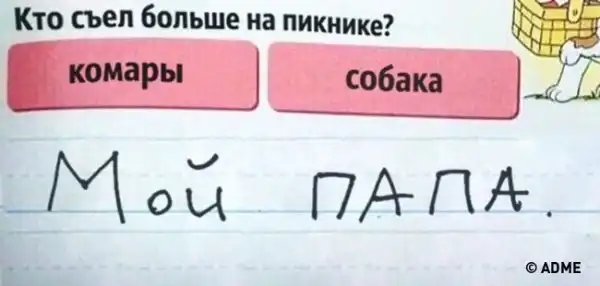 Кто съел больше на пикнике?
комары собака
Мой ПАПА.
© ADME